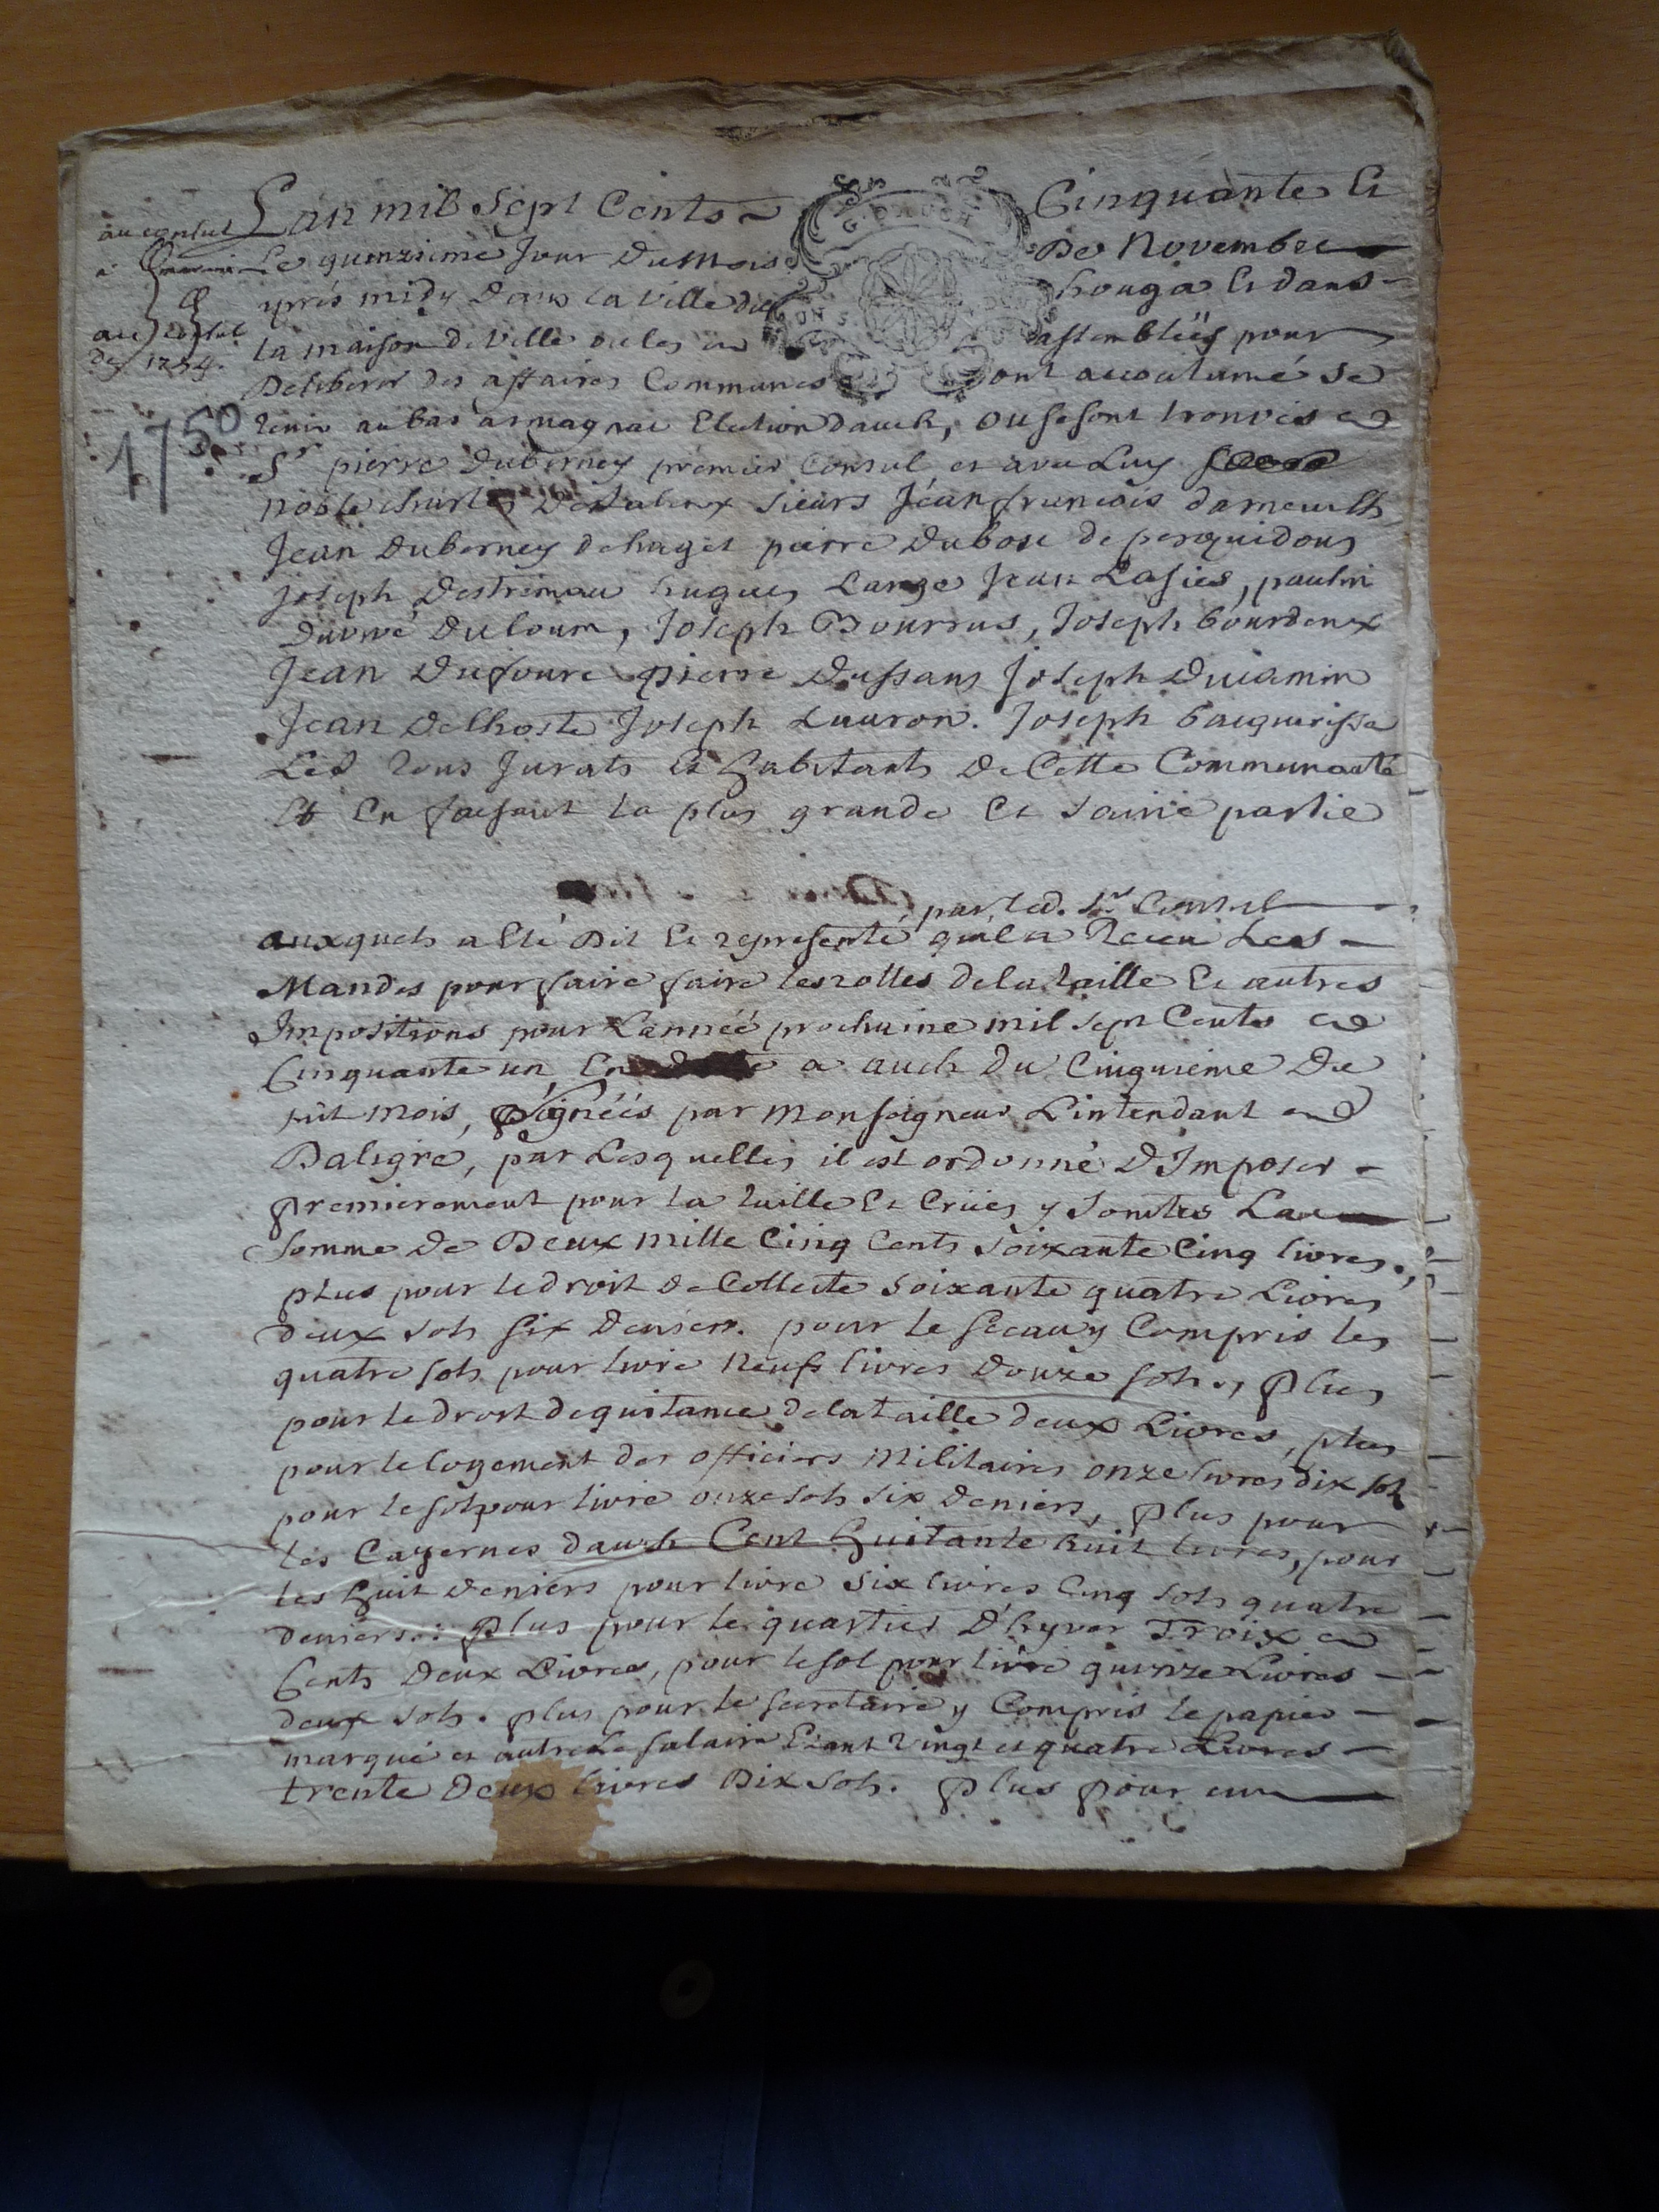 Lan mil Sept Cents Cinquante Et
au consul
Le quinzieme Jour Du Mois De Novembre
aprés midy Dans la Ville du houga Et dans
la maison De Ville ou les assemblëes pour
de 1754.
Deliberer des affaires Communes ont accoutumé se
1750
tenir au bas armagnac Election Dauch, ou se sont trouvés
Sr pierre Duberney premier Consul et avec Luy
noble charles sieurs Jean francois
Jean Duberney de haget pierre Dubosc de perquidous
Joseph Destrimau hugues Lange Jean Lasies, paulin
Duloum, Joseph Bourrus, Joseph bourdeux
Jean Dufourc pierre Dussans Joseph
Jean Delhoste Joseph Lauron. Joseph
tous Jurats Et habitants De Cette Communauté
Et En faisant la plus grande Et saine partie
par led. Sr Consul
auxquels a Eté Dit Et representé quil a Receu Les
Mandes pour faire faire les rolles de la taille Et autres
Impositions pour Lanneé prochaine mil sept Cents
Cinquante un, En a auch du Cinquieme Du
mois, signéés par Monseigneur Lintendant
Daligre, par Lesquelles il est ordonné DImposer
premierement pour la taille Et Crües y Jointes La
somme De Deux mille Cinq Cents soixante Cinq livres.,
plus pour le droit de Collecte soixante quatre Livres
deux sols six Deniers. pour le sceau y Compris les
quatre sols pour livre neuf livres Douze sols., plus
pour le droit de quitance de la taille deux Livres, plus
pour le logement des officiers Militaires onze livres dix sols
pour le sol pour livre onze sols six Deniers, plus pour
les Cazernes dauch Cent huitante huit livres, pour
les huit Deniers pour livre six livres Cinq sols quatre
deniers.: plus pour le quartier Dhyver Troix
Cents Deux Livres, pour le sol pour livre quinze Livres
deux sols. plus pour le secretaire y Compris le papier
marqué et autre Le salaire Etant vingt et quatre Livres
trente Deux livres Dix sols. plus pour un